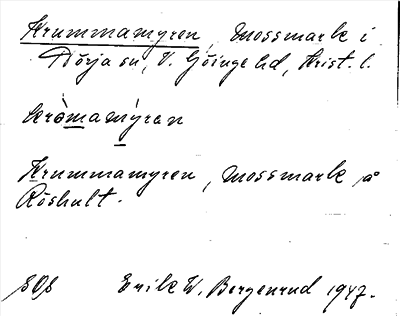 Krummamyren, Mossmark i
Dörja sn, V. Göinge hd, Krist. l.
kròmamýren
Krummamyren, mossmark å
Röshult.
Erik W. Bergenrud 1947.